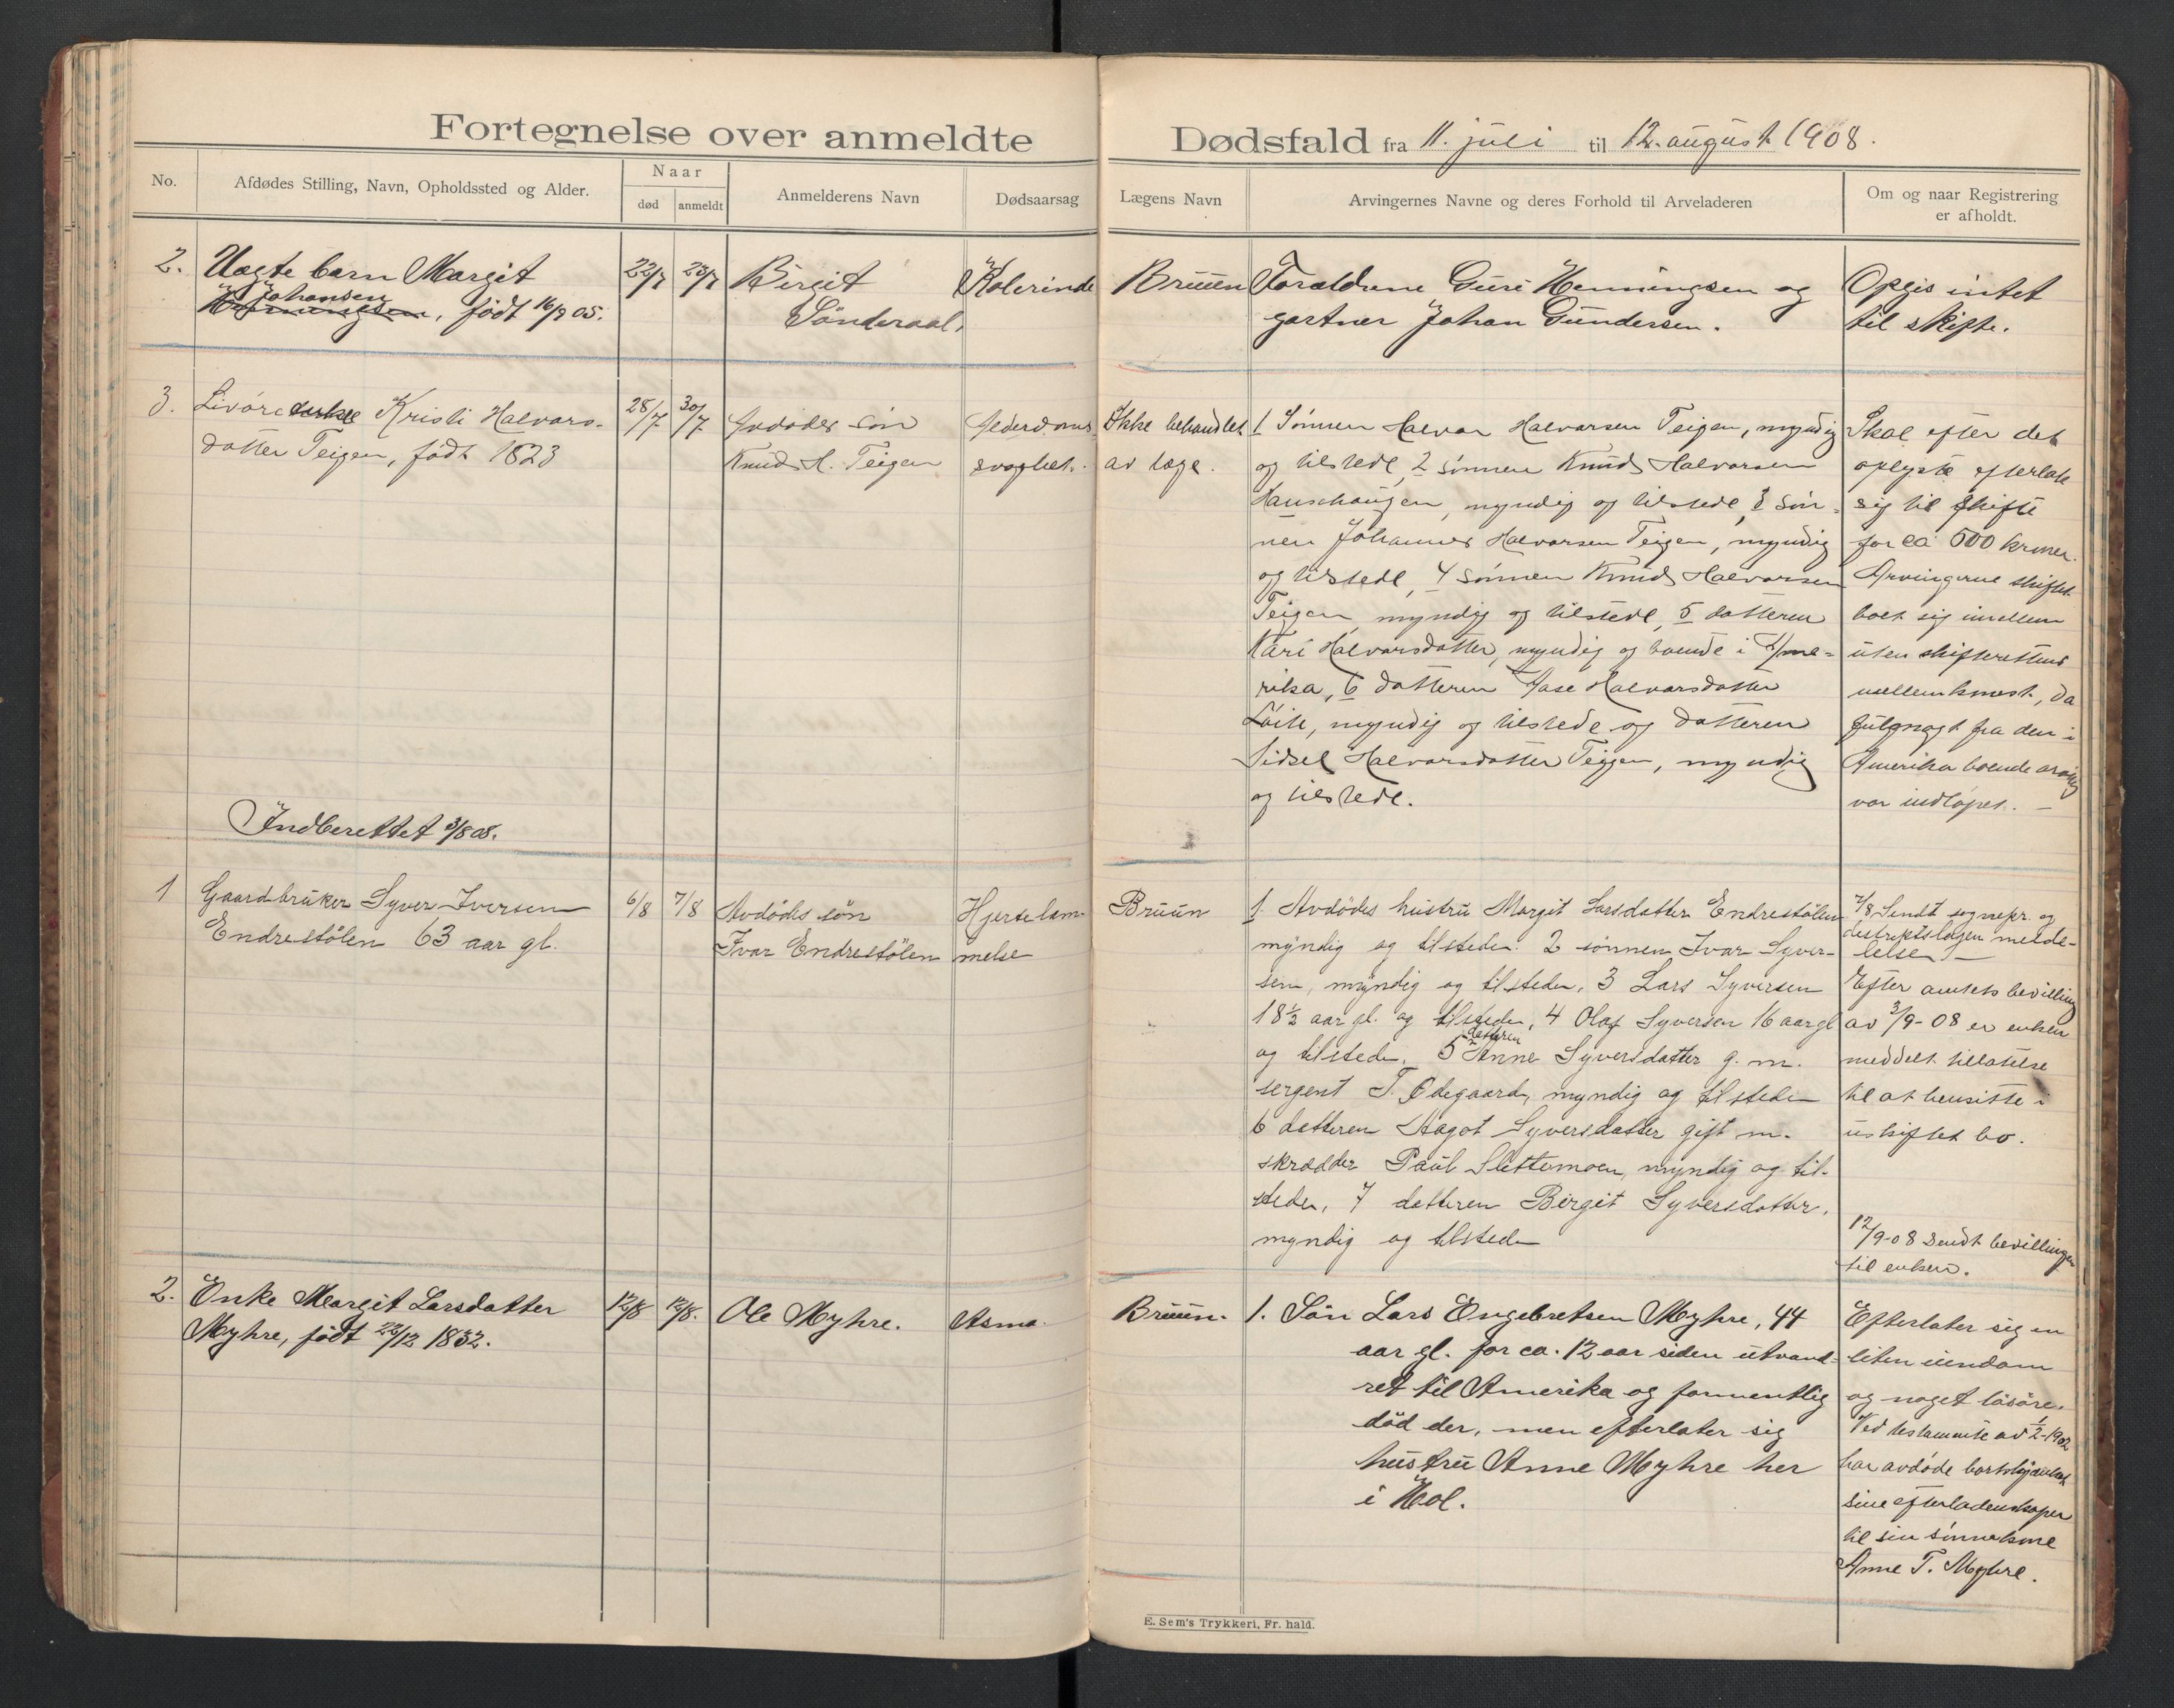 Fortegnelse over anmeldte Dødsfald fra 11. juli til 12. august 1908.
No.
Afdødes Stilling, Navn, Opholdssted og Alder.
Naar
død
anmeldt
Anmelderens Navn
Dødsaarsag
Lægens Navn
Arvingernes Navne og deres Forhold til Arveladeren
Om og naar Registrering
er afholdt.
2. Uægte barn Margit
Johansen
Henningsen, født 16/9 05.
22/7
23/7
Birgit
Sönderaal.
Kolerinde
Bruun
Forældrene Guri Henningsen og
gartner Johan Gundersen.
Opgis intet
til skifte.
3. Livöre Kristi Halvors-
datter Teigen, født 1823
28/7
30/7
Avdødes søn
Knud H. Teigen
Alderdoms-
svaghet.
Ikke behandlet
av læge.
1 Sønnen Halvor Halvorsen Teigen, myndig
og tilstede, 2 sønnen Knud Halvorsen
myndig og tilstede, 3 søn-
nen Johannes Halvorsen Teigen, myndig
og tilstede, 4 sønnen Knud Halvorsen
Teigen, myndig og tilstede, 5 datteren
Kari Halvorsdatter, myndig og boende i Ame-
rika, 6 datteren Aase Halvorsdatter
myndig og tilstede og datteren
Sidsel Halvorsdatter Teigen, myndig
og tilstede.
Skal efter det
oplyste efterlate
sig til skifte
for ca 500 kroner.
Arvingerne skiftet
boet sig imellem
uten skifterettens
mellemkomst, da
fulmagt fra den i
Amerika boende arving
var indløpet. –
Indberettet 3/8 08.
1
Gaardbruker Syver Iversen
Endrestølen 63 aar gl.
6/8
7/8
Avdødes søn
Ivar Endrestølen
Hjertelam-
melse
Bruun
1. Avdødes hustru Margit Larsdatter Endrestølen
myndig og tilstede. 2 sønnen Ivar Syver-
sen, myndig og tilstede, 3 Lars Syversen
18½ aar gl. og tilstede, 4 Olaf Syversen 16 aar gl
og tilstede. 5 datteren Anne Syversdatter g. m.
sergent T. Ødegaard, myndig og tilstede
6 datteren Aagot Syversdatter gift m.
skrædder Paul Slettemoen, myndig og til-
stede, 7 datteren Birgit Syversdatter,
myndig og tilstede
7/8 Sendt sognepr. og
distriktslægen medde-
lelse. –
Efter amtets bevilling
av 3/9-08 er enken
meddelt tillatelse
til at hensitte i
uskiftet bo.
12/9-08 sendt bevillingen
til enken.
2. Enke Margit Larsdatter
Myhre, født 22/12 1832.
12/8
12/8.
Ole Myhre.
Asma.
Bruun.
1. Søn Lars Engebretsen Myhre, 44
aar gl. for ca. 12 aar siden utvand-
ret til Amerika og formentlig
död der, men efterlater sig
hustru Anne Myhre her
i Hol.
Efterlater sig en
liten eiendom
og noget løsøre.
Ved testamente av 1/2-1902
har avdøde
sine efterladenskaper
til sin sønnekone
Anne T. Myhre.
E. Sem's Trykkeri, Fr. hald.